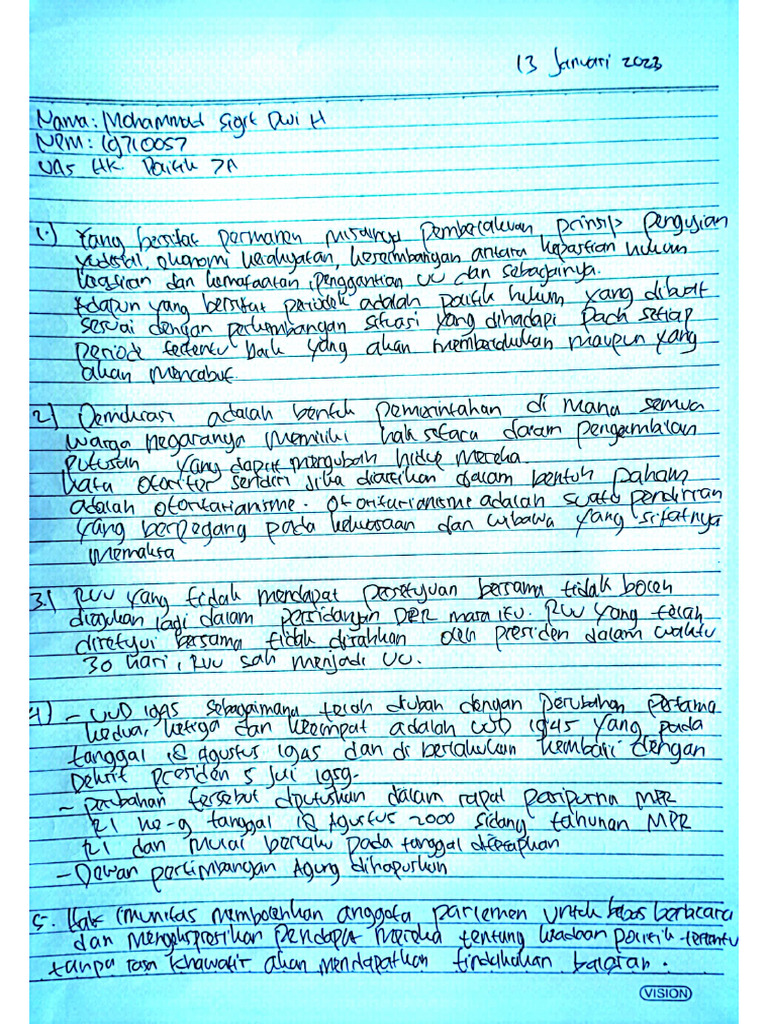 13 Januari 2023
Nama: Mohammad Sigit Dwi H
NPM: 19710057
UAS HK. Politik 7A
1.) Yang bersifat permanen misalnya pemberlakuan prinsip pengujian
yudisial, ekonomi kerakyatan, keseimbangan antara kepastian hukum
keadilan dan kemafaatan, penggantian UU dan sebagainya.
Adapun yang bersifat periodek adalah politik hukum yang dibuat
sesuai dengan perkembangan situasi yang dihadapi pada setiap
periode tertentu baik yang akan memberlakukan maupun yang
akan mencabut.
2.) Demokrasi adalah bentuk pemerintahan di mana semua
warga negaranya memiliki hak setara dalam pengambilan
putusan yang dapat mengubah hidup mereka
kata otoriter sendiri jika diartikan dalam bentuk paham
adalah otoritarianisme. Otoritarianisme adalah suatu pendirian
yang berpegang pada kekuasaan dan wibawa yang sifatnya
memaksa
3.) RUU yang tidak mendapat persetujuan bersama tidak boleh
diajukan lagi dalam persidangan DPR masa itu. RUU yang telah
disetujui bersama tidak disahkan oleh presiden dalam waktu
30 hari, RUU sah menjadi UU.
4.) - UUD 1945 sebagaimana telah diubah dengan perubahan pertama
kedua, ketiga dan keempat adalah UUD 1945 yang pada
tanggal 18 Agustus 1945 dan di berlakukan kembali dengan
Dekrit presiden 5 Juli 1959.
- perubahan tersebut diputuskan dalam rapat paripurna MPR
RI ke-9 tanggal 18 Agustus 2000 sidang tahunan MPR
RI dan mulai berlaku pada tanggal ditetapkan
- Dewan pertimbangan Agung dihapuskan
5. Hak imunitas membolehkan anggota parlemen untuk bebas berbicara
dan mengekspresikan pendapat mereka tentang keadaan politik tertentu
tanpa rasa khawatir akan mendapatkan tindakan balasan.
VISION